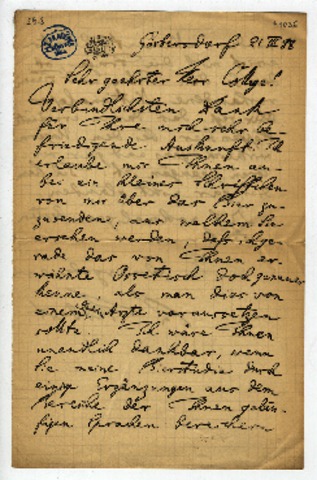 Görbersdorf 21 III 88
Sehr geehrter Herr College!
Verbindlichsten Dank
für Ihre mich sehr be-
friedigende Auskunft. Ich
erlaube mir Ihnen an-
bei ein kleines Schriftchen
von mir über das Bier zu-
zusenden, aus welchem Sie
ersehen werden, daß ich ge-
rade das von Ihnen er-
wähnte Ossetisch doch genauer
kenne, als man dies von
einem Arzte voraussetzen
sollte. Ich wäre Ihnen
unendlich dankbar, wenn
Sie meine Bierstudie durch
einige Ergänzungen aus dem
Bereiche der Ihnen geläu-
figen Sprachen bereichern